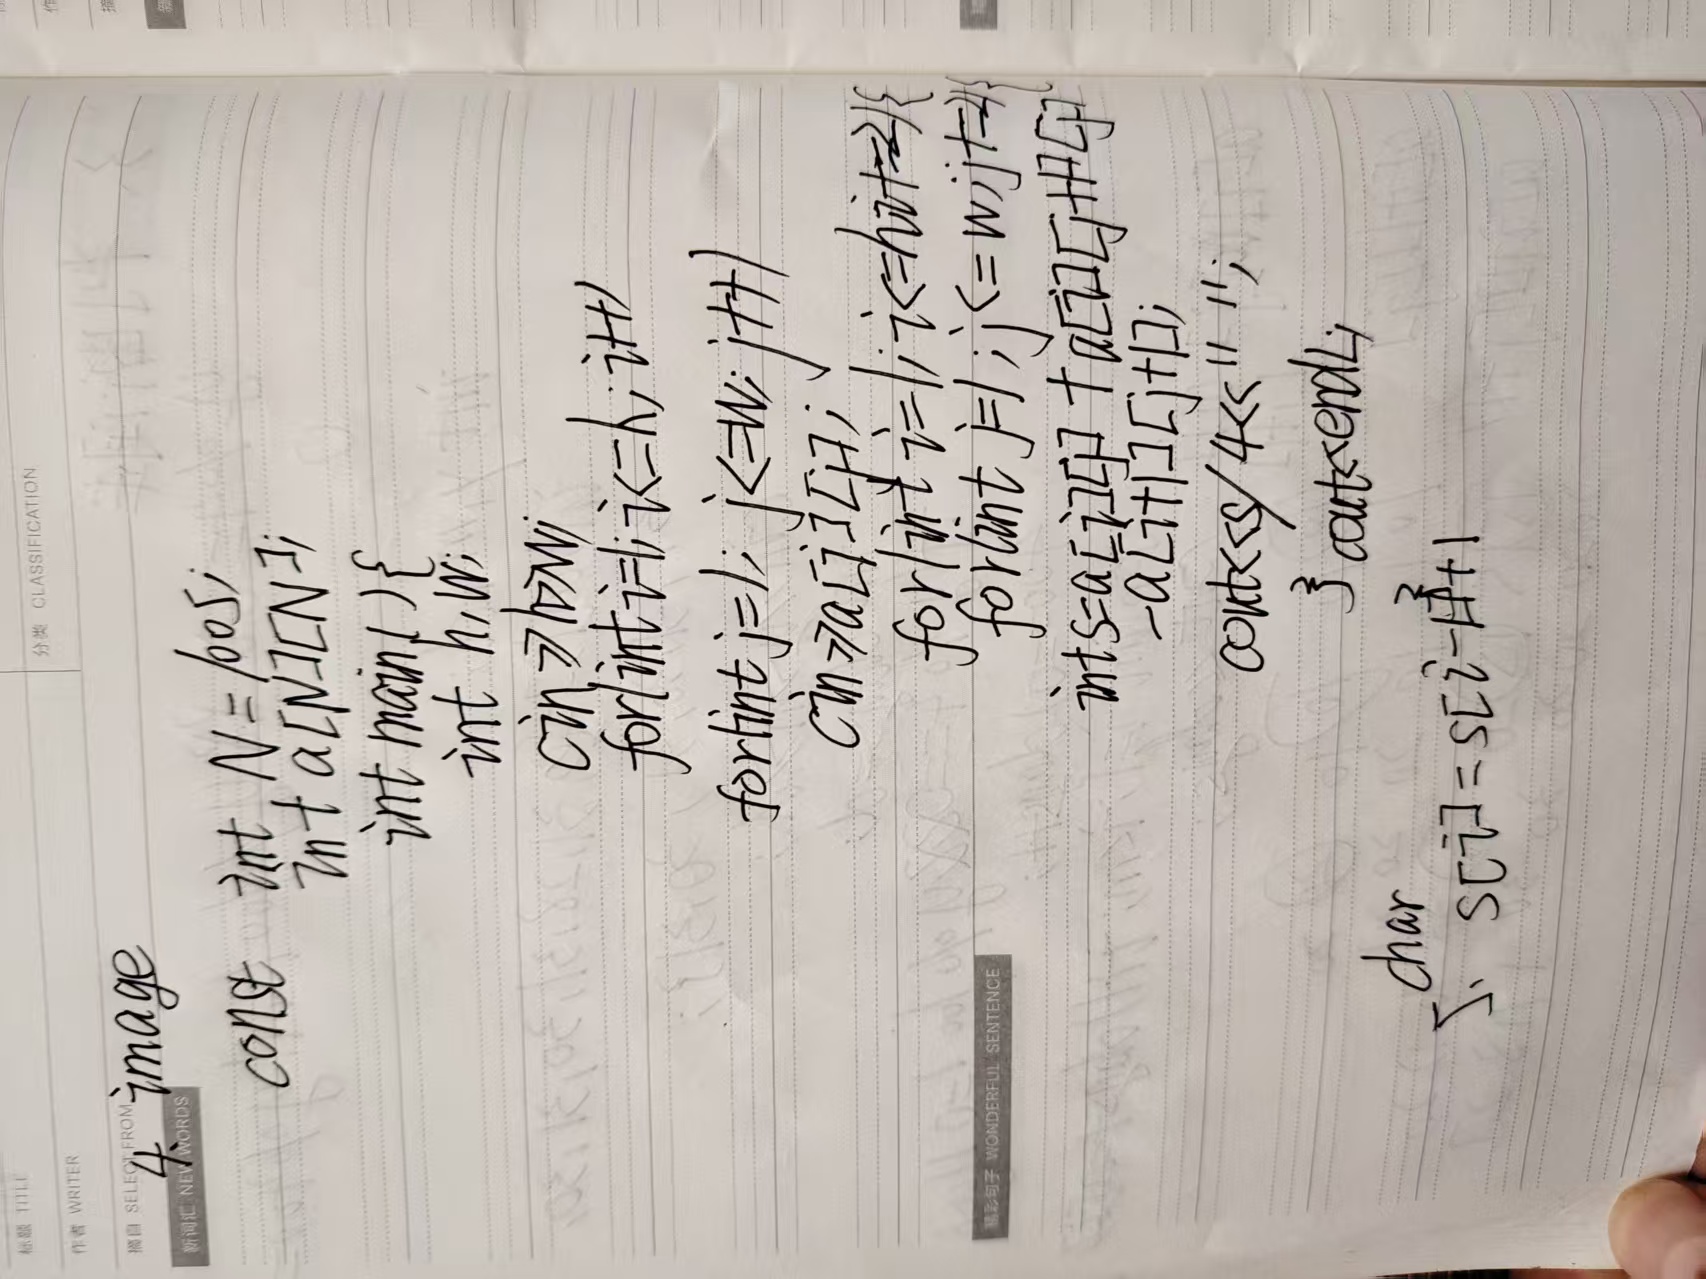 标题 TITLE
分类 CLASSIFICATION
作者 WRITER
摘自 SELECT FROM
4. image
新词汇 NEW WORDS
const int N = 1005;
int a[N][N];
int main( ) {
int h,w;
cin>>h>>w;
for(int i=1;i<=h;i++)
for(int j=1; j<=w; j++)
cin>>a[i][j];
for(int i=1; i<=h;i+=2){
for(int j=1; j<=w;j+=2){
int s=a[i][j] + a[i][j+1]
-a[i+1][j+1];
cout<<s/4<<" ";
} cout<<endl;
精彩句子 WONDERFUL SENTENCE
char
5. s[i]=s[i-1]+1